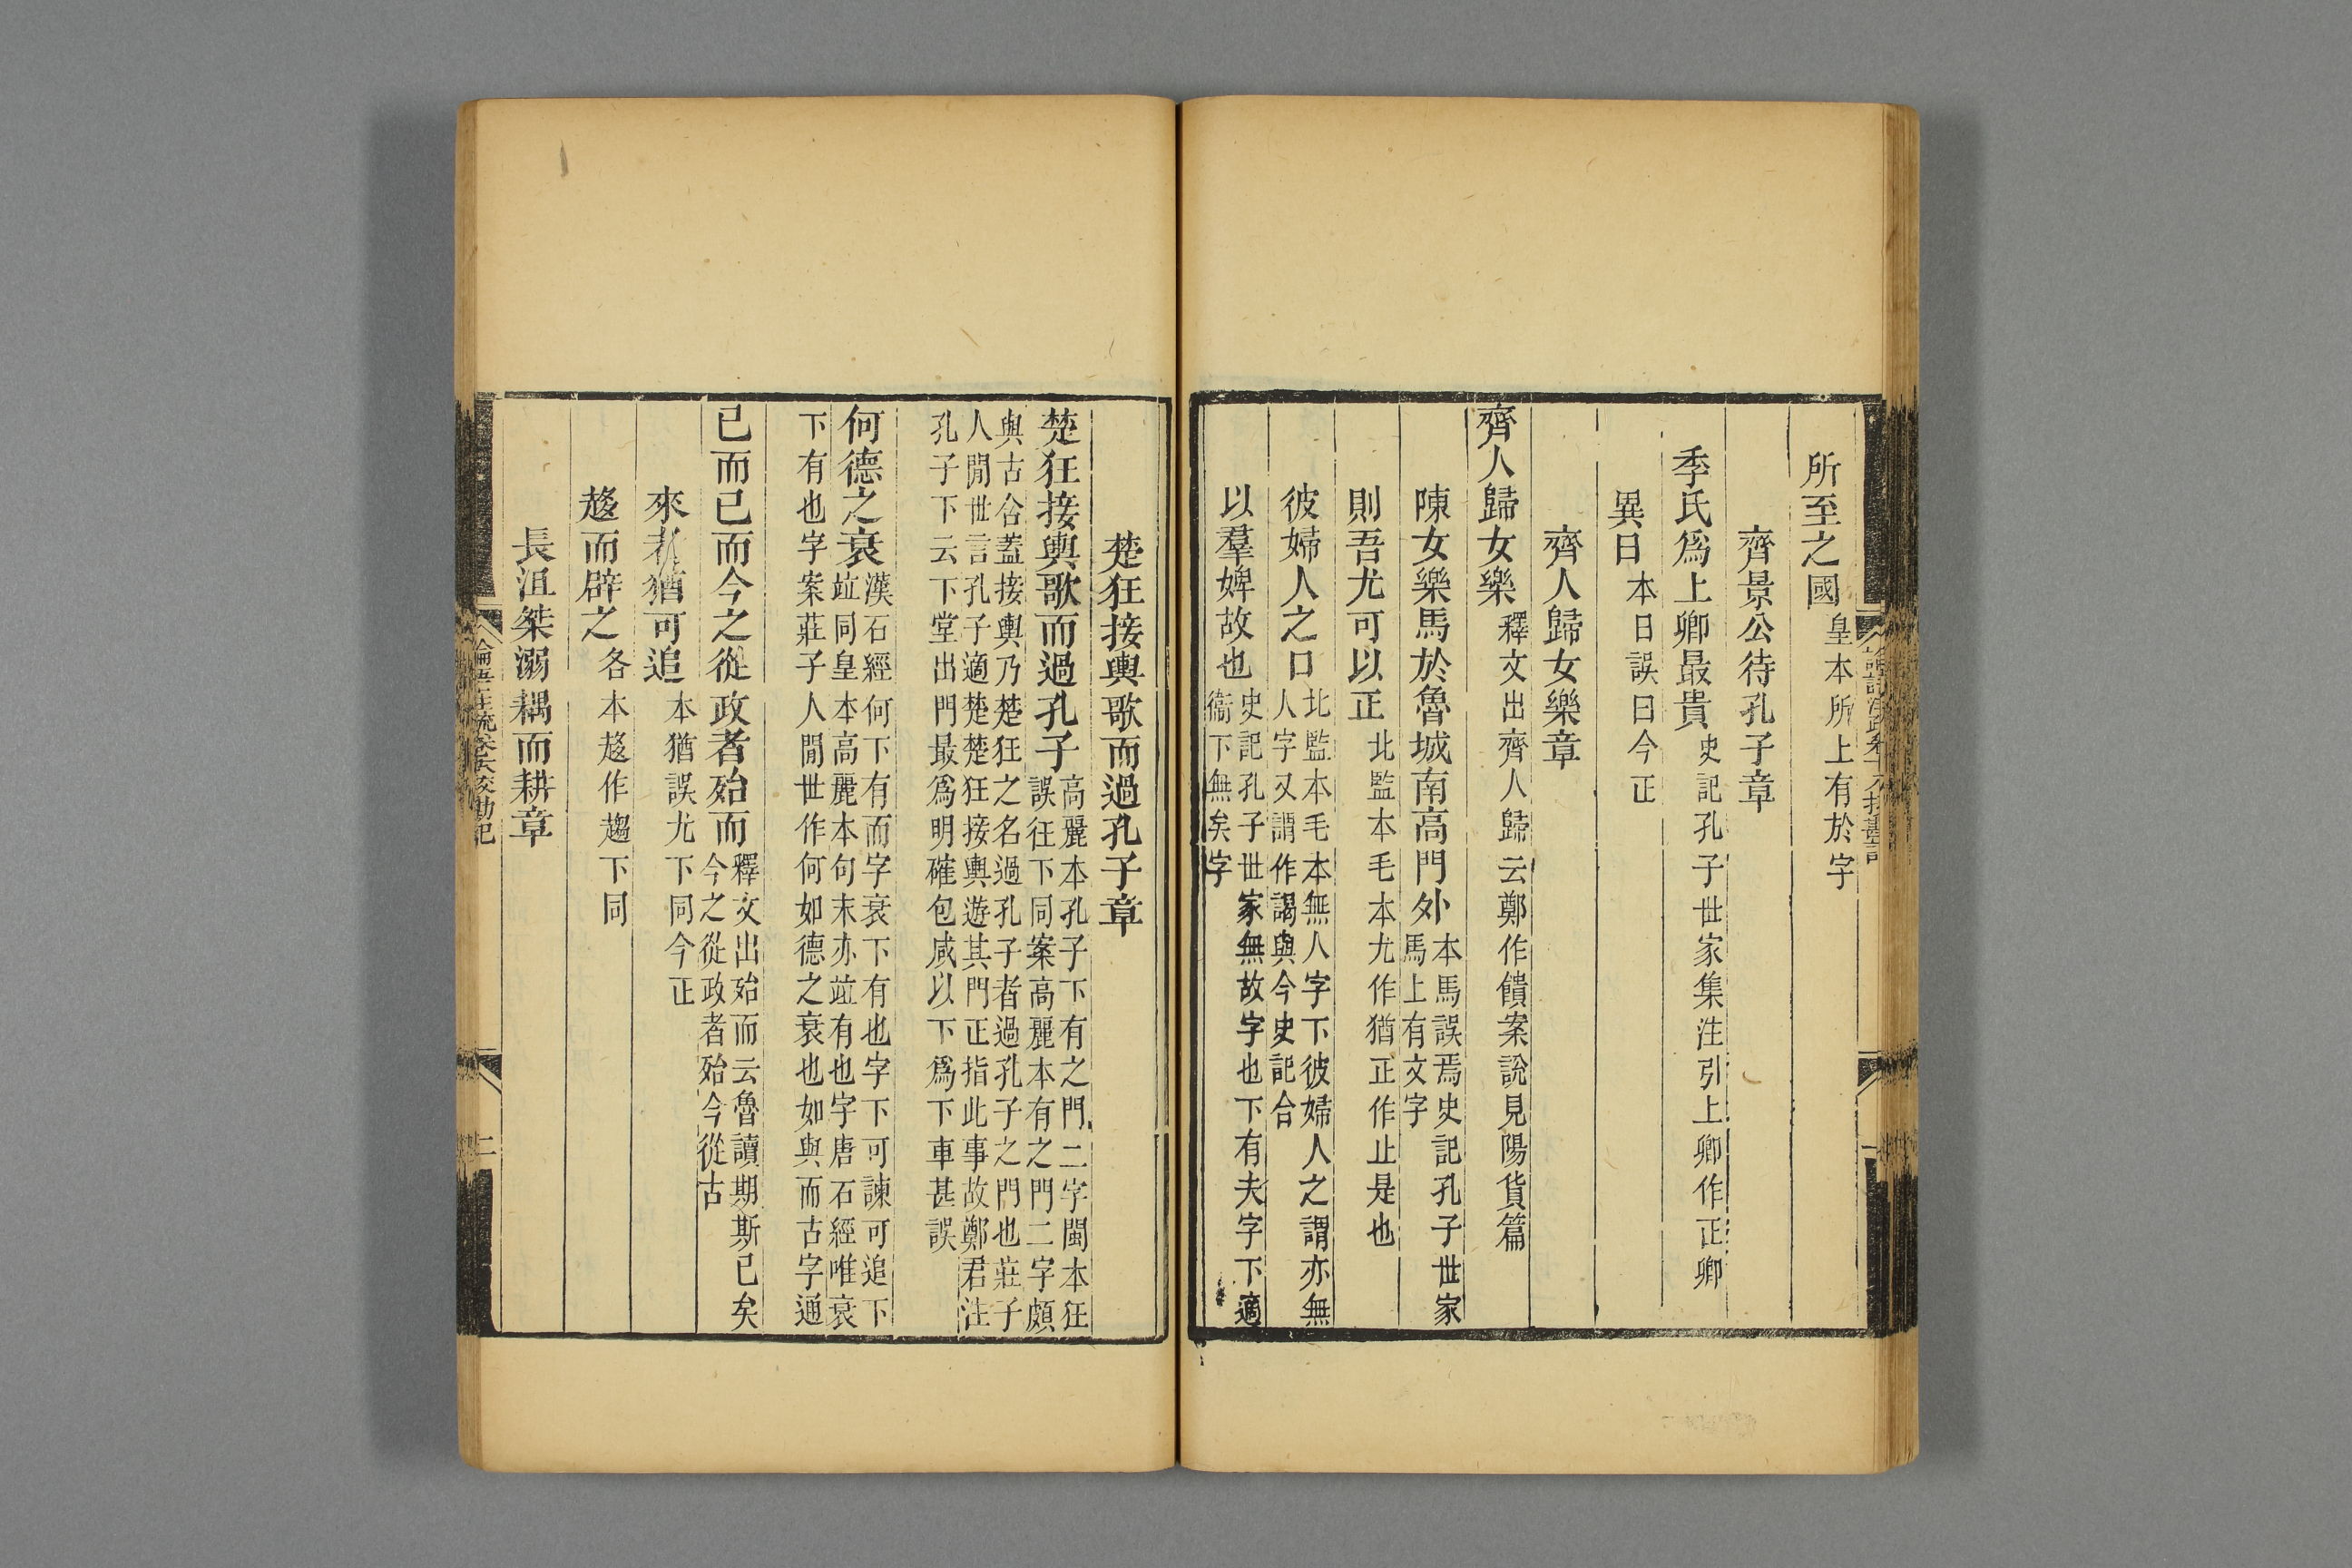 所至之國皇本所上有於字
齊景公待孔子章
季氏爲上卿最貴史記孔子世家集注引上卿作正卿
異日本日誤曰今正
齊人歸女樂章
齊人歸女樂釋文出齊人歸云鄭作饋案說見陽貨篇
陳女樂馬於魯城南高門外本馬誤焉史記孔子世家
馬上有文字
則吾尤可以正北監本毛本尤作猶正作止是也
彼婦人之口北監本毛本無人字下彼婦人之謂亦無
人字又謂作謁與今史記合
以羣婢故也史記孔子世家無故字也下有夫字下適
衞下無矣字
楚狂接輿歌而過孔子章
楚狂接輿歌而過孔子高麗本孔子下有之門二字閩本狂
誤往下同案高麗本有之門二字頗
與古合蓋接輿乃楚狂之名過孔子者過孔子之門也莊子
人閒世言孔子適楚楚狂接輿遊其門正指此事故鄭君注
孔子下云下堂出門最爲明確包咸以下爲下車甚誤
何德之衰漢石經何下有而字衰下有也字下可諫可追下
竝同皇本高麗本句末亦竝有也字唐石經唯衰
下有也字案莊子人閒世作何如德之衰也如與而古字通
已而已而今之從政者殆而釋文出殆而云魯讀期斯已矣
今之從政者殆今從古
來者猶可追本猶誤尤下同今正
趍而辟之各本趍作趨下同
長沮桀溺耦而耕章
論語注疏卷十八校勘記
二